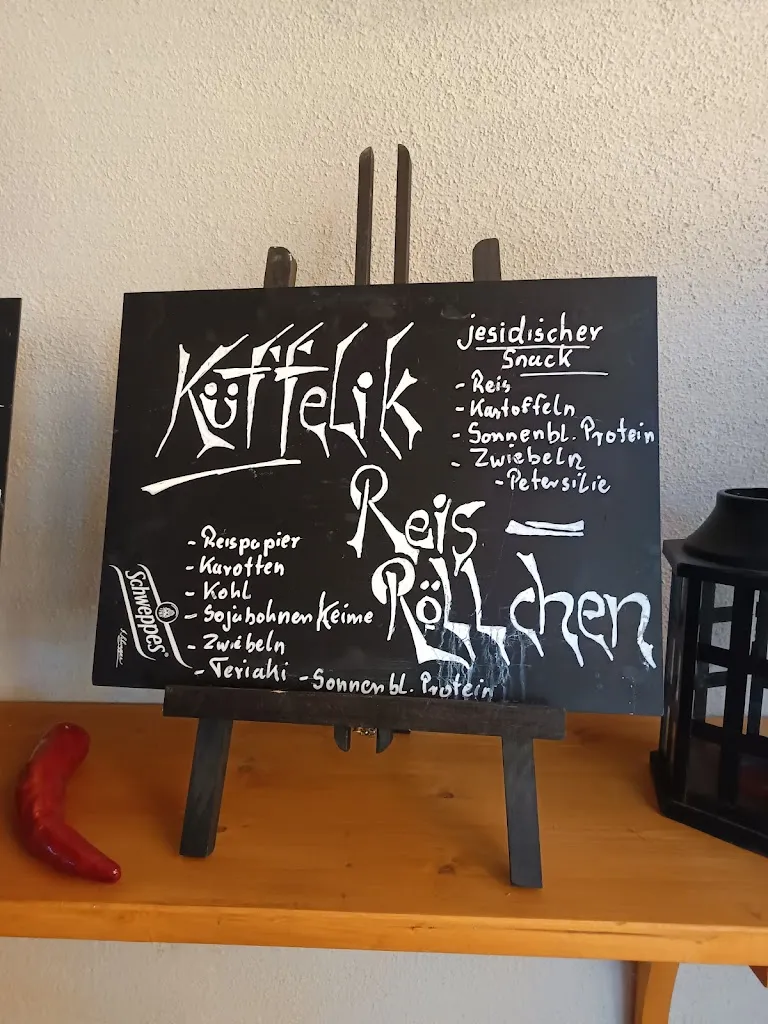 Küffelik
jesidischer
Snack
- Reis
- Kartoffeln
- Sonnenbl. Protein
- Zwiebeln
- Petersilie
Reis -
Röllchen
- Reispapier
- Karotten
- Kohl
- Sojabohnen Keime
- Zwiebeln
- Teriaki - Sonnenbl. Protein
Schweppes